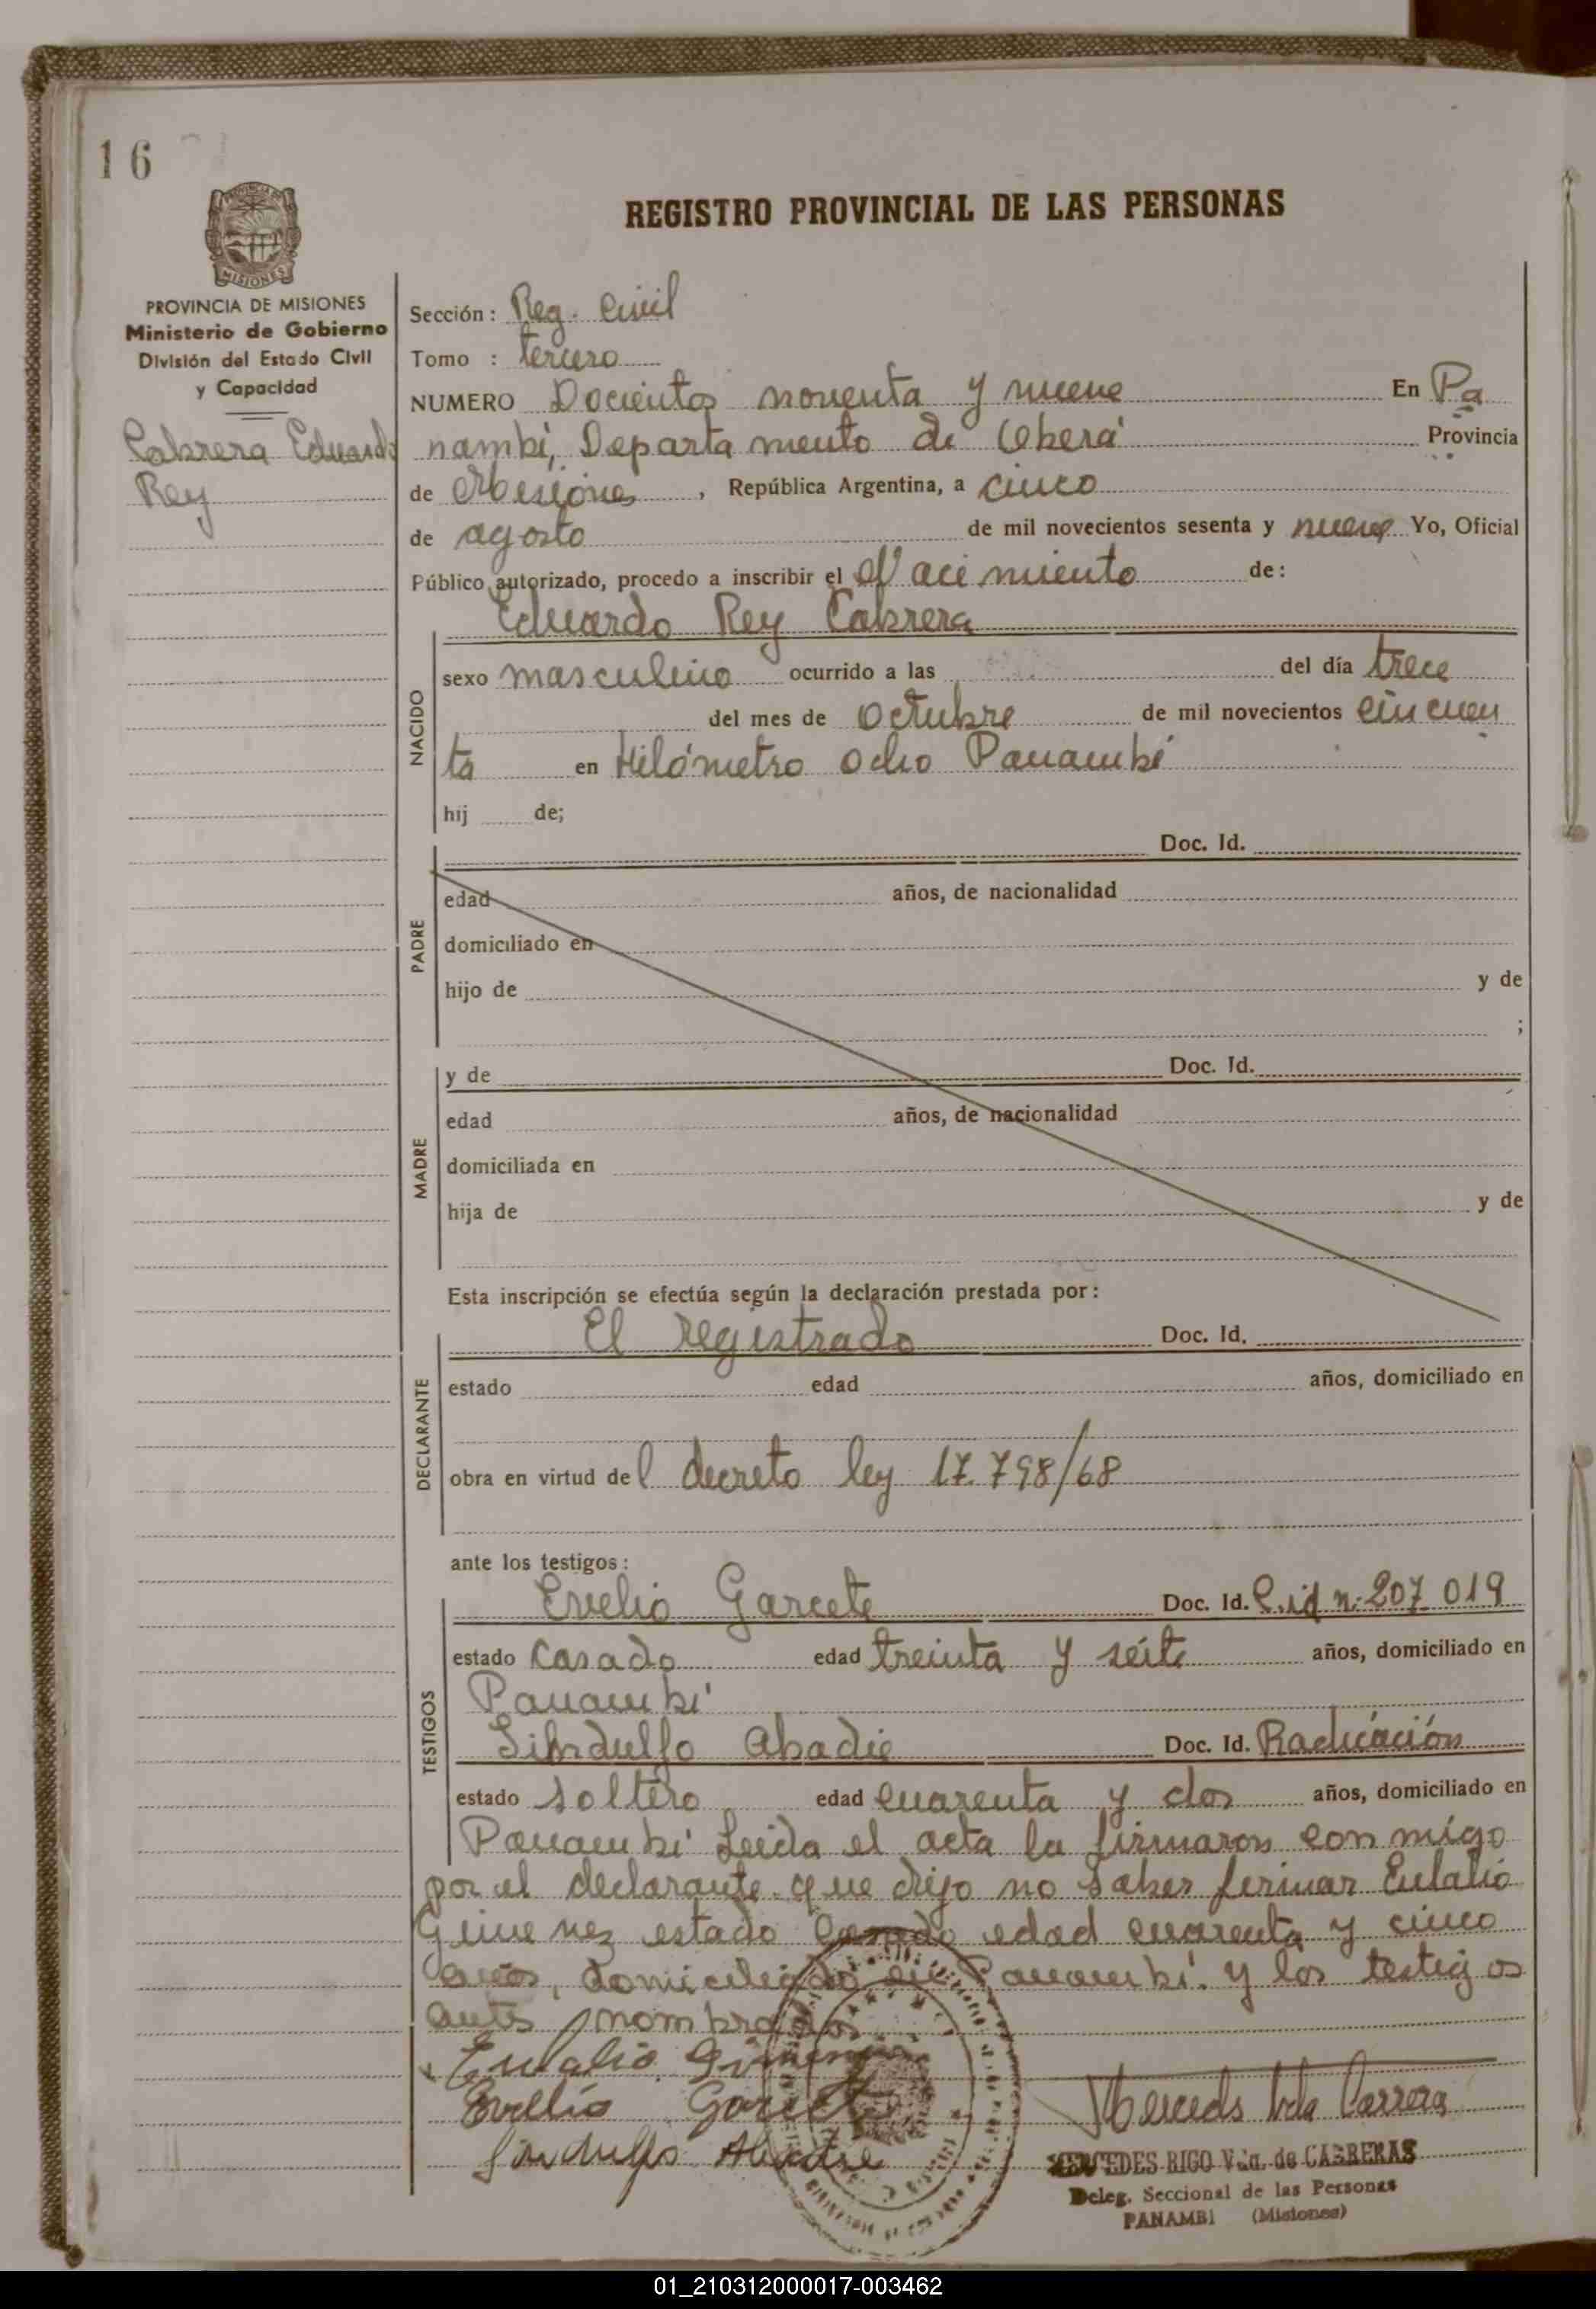 16
REGISTRO PROVINCIAL DE LAS PERSONAS
MISIONES
PROVINCIA DE MISIONES
Ministerio de Gobierno
División del Estado Civil
y Capacidad
Cabrera Eduardo
Rey
Sección: Reg. Civil
Tomo : tercero
NUMERO Docientos noventa y nueve En Pa
nambí, Departamento de Oberá Provincia
de Misiones, República Argentina, a cinco
de agosto de mil novecientos sesenta y nueve Yo, Oficial
Público autorizado, procedo a inscribir el Nacimiento de:
Eduardo Rey Cabrera
NACIDO
sexo masculino ocurrido a las del día trece
del mes de Octubre de mil novecientos cincuen
ta en Kilómetro ocho Panambí
hij de;
PADRE
Doc. Id.
edad años, de nacionalidad
domiciliado en
hijo de y de
;
MADRE
y de Doc. Id.
edad años, de nacionalidad
domiciliada en
hija de y de
Esta inscripción se efectúa según la declaración prestada por:
DECLARANTE
El registrado Doc. Id.
estado edad años, domiciliado en
obra en virtud del decreto ley 17.798/68
ante los testigos:
TESTIGOS
Evelio Garcete Doc. Id. C.id n: 207.019
estado casado edad treinta y seite años, domiciliado en
Panambí
Sindulfo Abadie Doc. Id. Radicación
estado soltero edad cuarenta y dos años, domiciliado en
Panambí Leida el acta la firmaron con migo
por el declarante que dijo no saber firmar Eulalio
Gimenez estado casado edad cuarenta y cinco
años, domiciliado en Panambí. y los testigos
antes nombrados
Eulalio Gimenez
Evelio Garcete
Sindulfo Abadie
Mercedes Vda Carrera
MERCEDES RIGO Vda. de CABRERAS
Deleg. Seccional de las Personas
PANAMBI (Misiones)
01_210312000017-003462